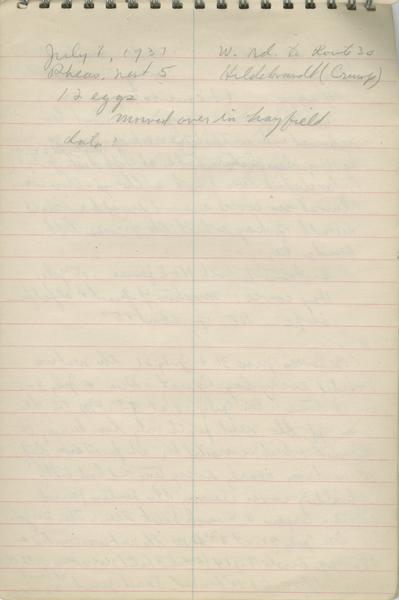 July 8, 1937 W. Rd. to Route 30
Pheas. nest 5 Hildebrandt (Crump)
12 eggs
mowed over in hayfield
data: